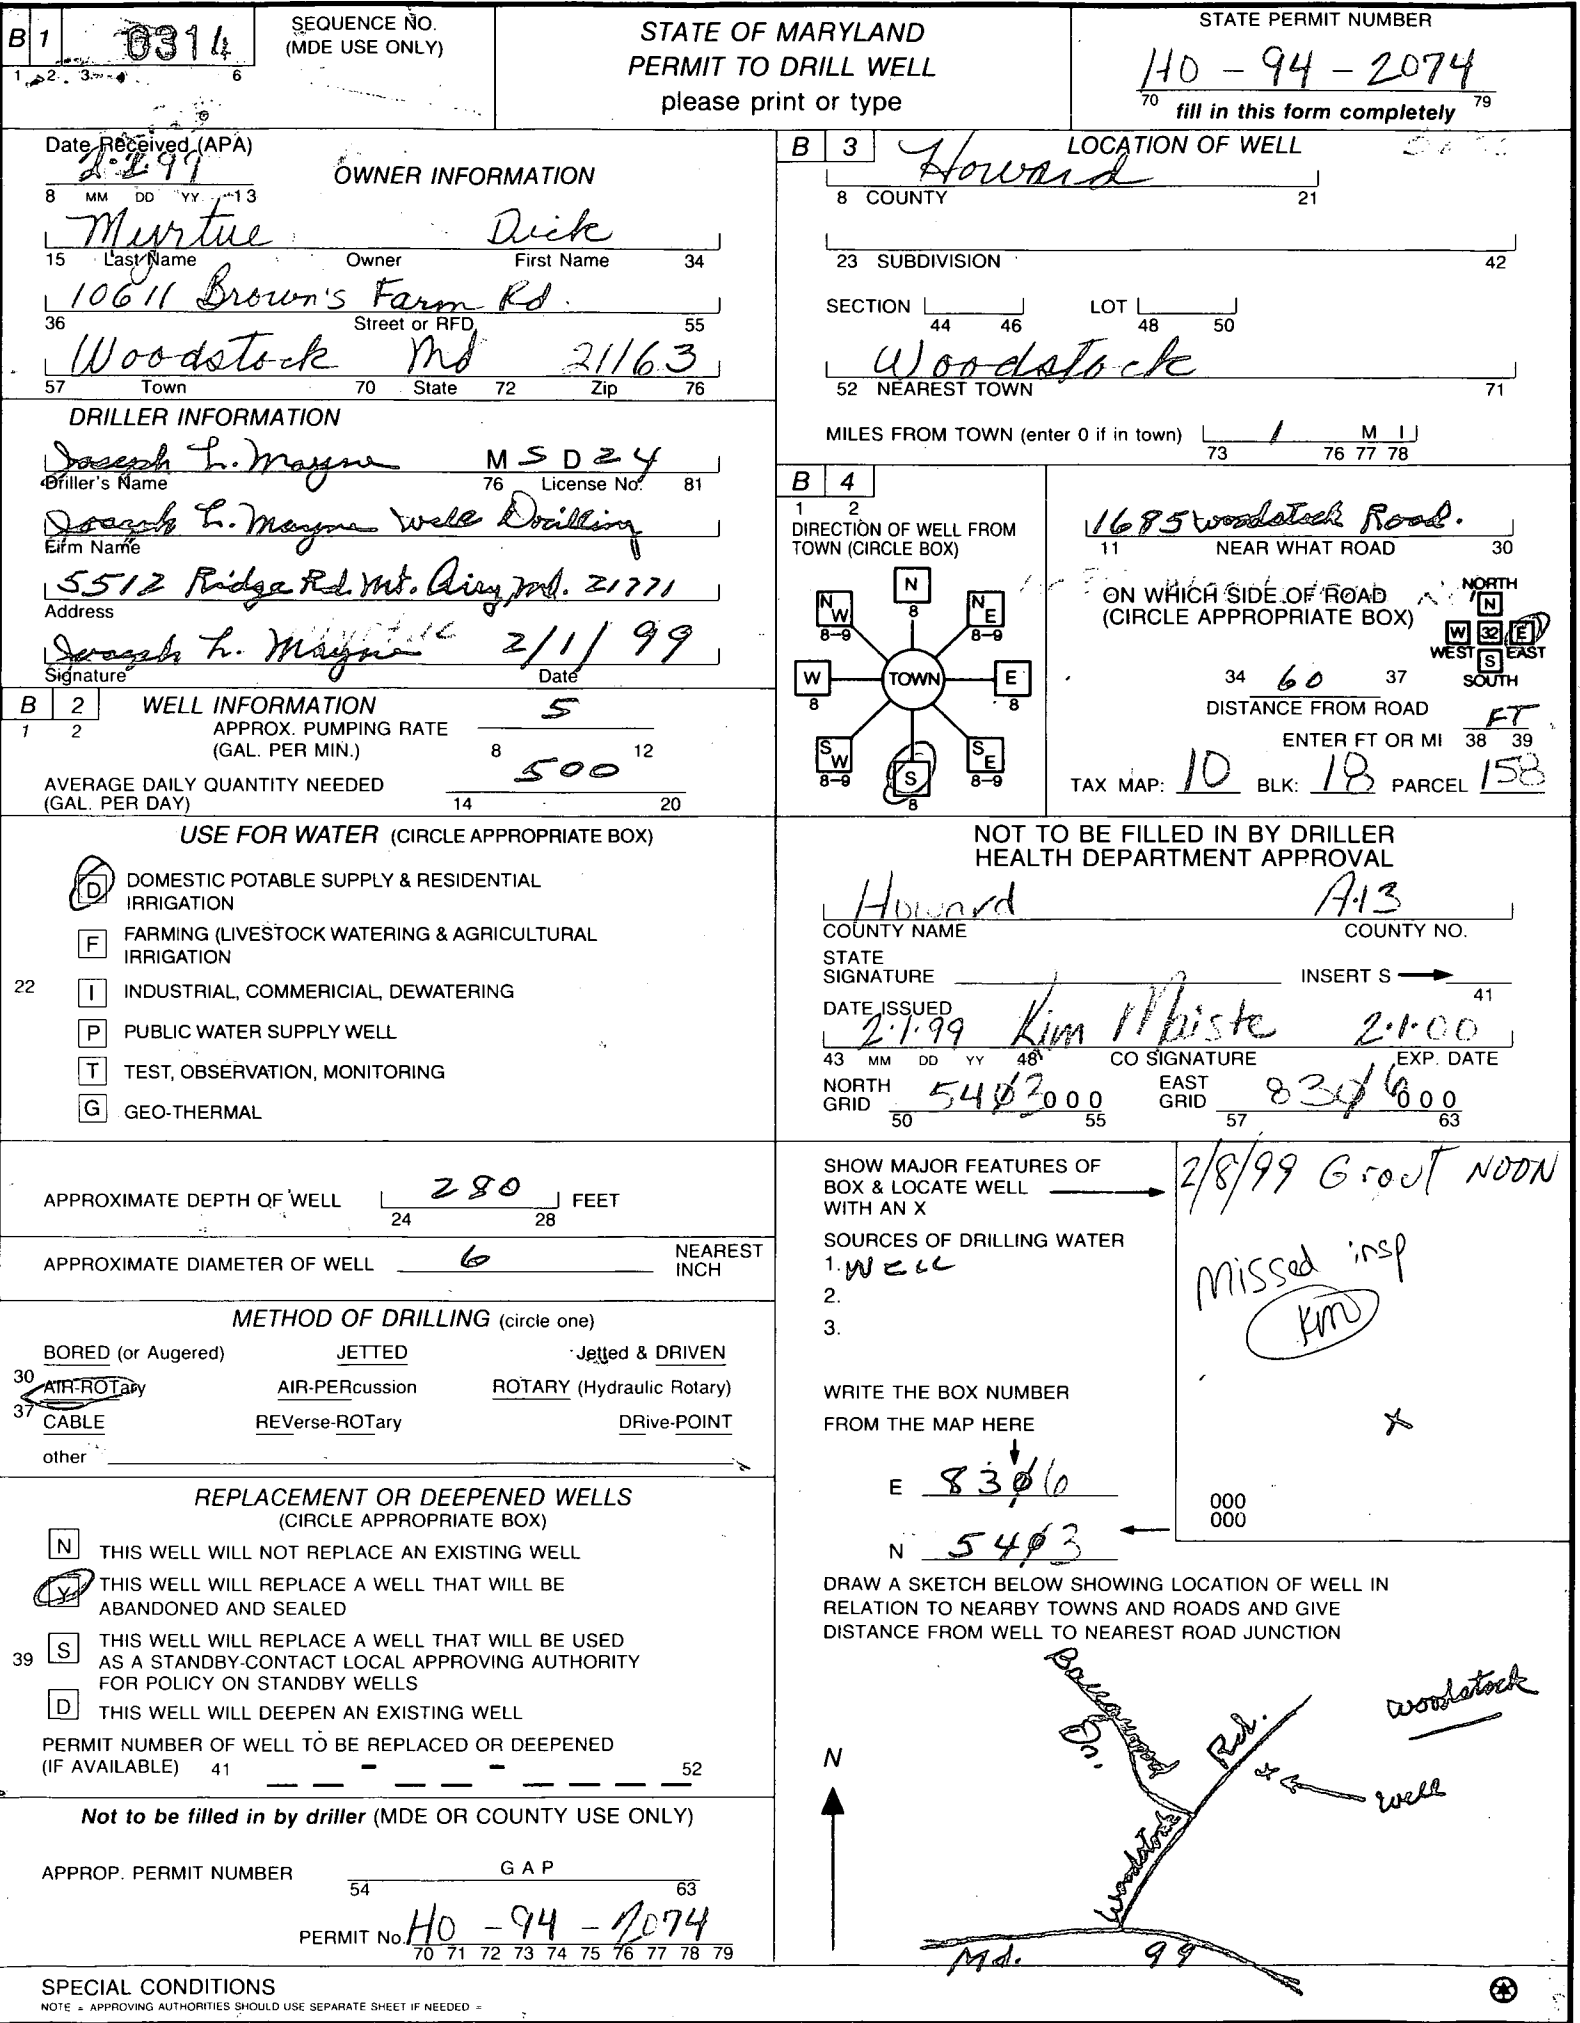 B 1 0314 SEQUENCE NO. (MDE USE ONLY)
1 2 3 6
STATE OF MARYLAND
PERMIT TO DRILL WELL
please print or type
STATE PERMIT NUMBER
HO - 94 - 2074
70 fill in this form completely 79
Date Received (APA)
2.2.99
8 MM DD YY 13
OWNER INFORMATION
Myrtue Dick
15 Last Name Owner First Name 34
10611 Brown's Farm Rd.
36 Street or RFD 55
Woodstock Md 21163
57 Town 70 State 72 Zip 76
DRILLER INFORMATION
Joseph L. Mayne M S D 24
Driller's Name 76 License No. 81
Joseph L. Mayne Well Drilling
Firm Name
5512 Ridge Rd. Mt. Airy, Md. 21771
Address
Joseph L. Mayne 2/1/99
Signature Date
B 2 WELL INFORMATION
1 2
APPROX. PUMPING RATE (GAL. PER MIN.) 5
8 12
AVERAGE DAILY QUANTITY NEEDED (GAL. PER DAY) 500
14 20
USE FOR WATER (CIRCLE APPROPRIATE BOX)
D DOMESTIC POTABLE SUPPLY & RESIDENTIAL
IRRIGATION
F FARMING (LIVESTOCK WATERING & AGRICULTURAL
IRRIGATION
22
I INDUSTRIAL, COMMERICIAL, DEWATERING
P PUBLIC WATER SUPPLY WELL
T TEST, OBSERVATION, MONITORING
G GEO-THERMAL
APPROXIMATE DEPTH OF WELL 280 FEET
24 28
APPROXIMATE DIAMETER OF WELL 6 NEAREST INCH
METHOD OF DRILLING (circle one)
BORED (or Augered) JETTED Jetted & DRIVEN
30 AIR-ROTary AIR-PERcussion ROTARY (Hydraulic Rotary)
37 CABLE REVerse-ROTary DRive-POINT
other
REPLACEMENT OR DEEPENED WELLS
(CIRCLE APPROPRIATE BOX)
N THIS WELL WILL NOT REPLACE AN EXISTING WELL
Y THIS WELL WILL REPLACE A WELL THAT WILL BE
ABANDONED AND SEALED
39 S THIS WELL WILL REPLACE A WELL THAT WILL BE USED
AS A STANDBY-CONTACT LOCAL APPROVING AUTHORITY
FOR POLICY ON STANDBY WELLS
D THIS WELL WILL DEEPEN AN EXISTING WELL
PERMIT NUMBER OF WELL TO BE REPLACED OR DEEPENED
(IF AVAILABLE) 41 - - 52
Not to be filled in by driller (MDE OR COUNTY USE ONLY)
APPROP. PERMIT NUMBER G A P
54 63
PERMIT No. HO - 94 - 2074
70 71 72 73 74 75 76 77 78 79
SPECIAL CONDITIONS
NOTE = APPROVING AUTHORITIES SHOULD USE SEPARATE SHEET IF NEEDED =
B 3 LOCATION OF WELL
Howard
8 COUNTY 21
23 SUBDIVISION 42
SECTION LOT
44 46 48 50
Woodstock
52 NEAREST TOWN 71
MILES FROM TOWN (enter 0 if in town) 1 M I
73 76 77 78
B 4
1 2
DIRECTION OF WELL FROM
TOWN (CIRCLE BOX)
N 8
NW 8-9
NE 8-9
W 8
TOWN
E 8
SW 8-9
S 8
SE 8-9
1685 Woodstock Road.
11 NEAR WHAT ROAD 30
ON WHICH SIDE OF ROAD
(CIRCLE APPROPRIATE BOX)
NORTH
N
W 32 E
WEST EAST
S
SOUTH
34 60 37
DISTANCE FROM ROAD
ENTER FT OR MI FT
38 39
TAX MAP: 10 BLK: 18 PARCEL 158
NOT TO BE FILLED IN BY DRILLER
HEALTH DEPARTMENT APPROVAL
Howard A-13
COUNTY NAME COUNTY NO.
STATE
SIGNATURE INSERT S
41
DATE ISSUED
2.1.99 Kim Maiste 2.1.00
43 MM DD YY 48 CO SIGNATURE EXP. DATE
NORTH GRID 5403000 EAST GRID 8306000
50 55 57 63
SHOW MAJOR FEATURES OF
BOX & LOCATE WELL
WITH AN X
SOURCES OF DRILLING WATER
1. WELL
2.
3.
2/8/99 Grout NOON
Missed insp
KM
X
WRITE THE BOX NUMBER
FROM THE MAP HERE
E 8306
N 5403
000
000
DRAW A SKETCH BELOW SHOWING LOCATION OF WELL IN
RELATION TO NEARBY TOWNS AND ROADS AND GIVE
DISTANCE FROM WELL TO NEAREST ROAD JUNCTION
Dr.
Woodstock Rd.
woodstock
x
well
N
Md. 99